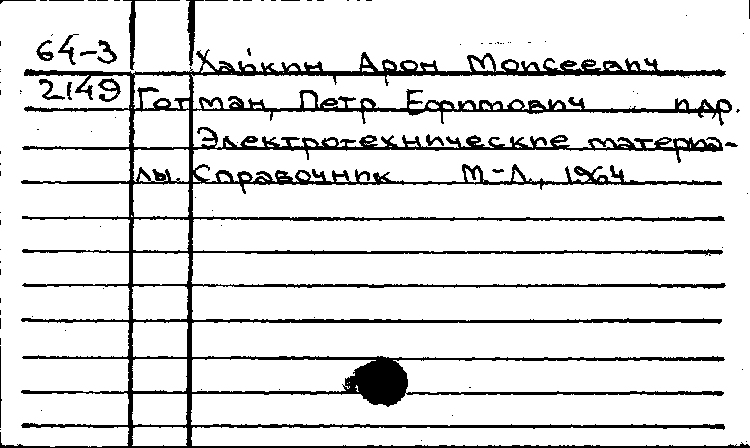 64-3 Хайкин, Арон Моисеевич
2149 Готман, Петр Ефимович и др.
Электротехнические материа-
лы. Справочник М.-Л., 1964.